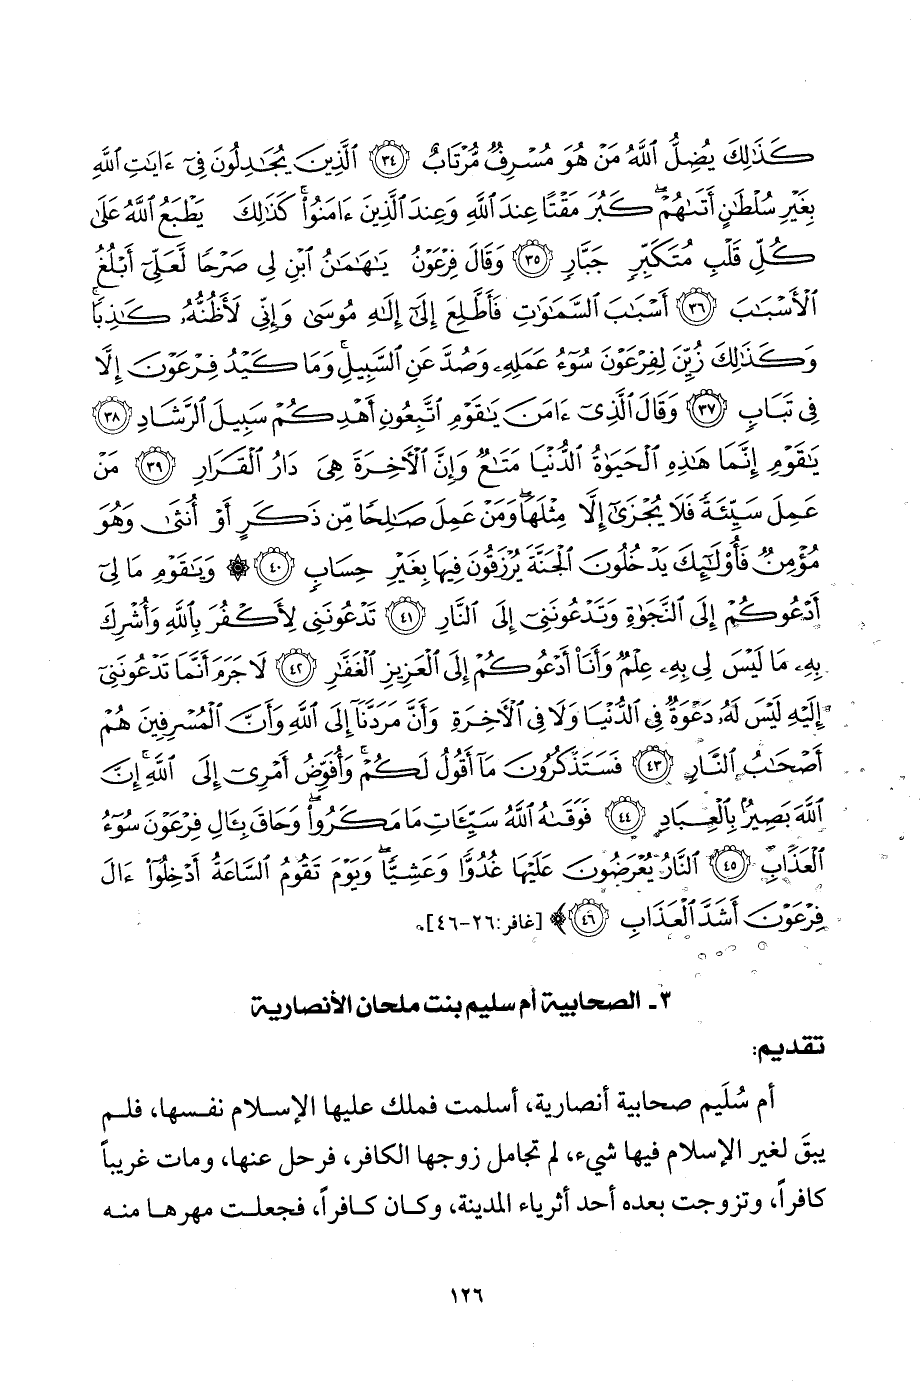 كَذَٰلِكَ يُضِلُّ ٱللَّهُ مَنْ هُوَ مُسْرِفٌ مُّرْتَابٌ ﴿٣٤﴾ ٱلَّذِينَ يُجَٰدِلُونَ فِىٓ ءَايَٰتِ ٱللَّهِ
بِغَيْرِ سُلْطَٰنٍ أَتَىٰهُمْ ۖ كَبُرَ مَقْتًا عِندَ ٱللَّهِ وَعِندَ ٱلَّذِينَ ءَامَنُوا۟ ۚ كَذَٰلِكَ يَطْبَعُ ٱللَّهُ عَلَىٰ
كُلِّ قَلْبِ مُتَكَبِّرٍ جَبَّارٍ ﴿٣٥﴾ وَقَالَ فِرْعَوْنُ يَٰهَٰمَٰنُ ٱبْنِ لِى صَرْحًا لَّعَلِّىٓ أَبْلُغُ
ٱلْأَسْبَٰبَ ﴿٣٦﴾ أَسْبَٰبَ ٱلسَّمَٰوَٰتِ فَأَطَّلِعَ إِلَىٰٓ إِلَٰهِ مُوسَىٰ وَإِنِّى لَأَظُنُّهُۥ كَٰذِبًا ۚ
وَكَذَٰلِكَ زُيِّنَ لِفِرْعَوْنَ سُوٓءُ عَمَلِهِۦ وَصُدَّ عَنِ ٱلسَّبِيلِ ۚ وَمَا كَيْدُ فِرْعَوْنَ إِلَّا
فِى تَبَابٍ ﴿٣٧﴾ وَقَالَ ٱلَّذِىٓ ءَامَنَ يَٰقَوْمِ ٱتَّبِعُونِ أَهْدِكُمْ سَبِيلَ ٱلرَّشَادِ ﴿٣٨﴾
يَٰقَوْمِ إِنَّمَا هَٰذِهِ ٱلْحَيَوٰةُ ٱلدُّنْيَا مَتَٰعٌ وَإِنَّ ٱلْءَاخِرَةَ هِىَ دَارُ ٱلْقَرَارِ ﴿٣٩﴾ مَنْ
عَمِلَ سَيِّئَةً فَلَا يُجْزَىٰٓ إِلَّا مِثْلَهَا ۖ وَمَنْ عَمِلَ صَٰلِحًا مِّن ذَكَرٍ أَوْ أُنثَىٰ وَهُوَ
مُؤْمِنٌ فَأُو۟لَٰٓئِكَ يَدْخُلُونَ ٱلْجَنَّةَ يُرْزَقُونَ فِيهَا بِغَيْرِ حِسَابٍ ﴿٤٠﴾ ۞ وَيَٰقَوْمِ مَا لِىٓ
أَدْعُوكُمْ إِلَى ٱلنَّجَوٰةِ وَتَدْعُونَنِىٓ إِلَى ٱلنَّارِ ﴿٤١﴾ تَدْعُونَنِى لِأَكْفُرَ بِٱللَّهِ وَأُشْرِكَ
بِهِۦ مَا لَيْسَ لِى بِهِۦ عِلْمٌ وَأَنَا۠ أَدْعُوكُمْ إِلَى ٱلْعَزِيزِ ٱلْغَفَّٰرِ ﴿٤٢﴾ لَا جَرَمَ أَنَّمَا تَدْعُونَنِىٓ
إِلَيْهِ لَيْسَ لَهُۥ دَعْوَةٌ فِى ٱلدُّنْيَا وَلَا فِى ٱلْءَاخِرَةِ وَأَنَّ مَرَدَّنَآ إِلَى ٱللَّهِ وَأَنَّ ٱلْمُسْرِفِينَ هُمْ
أَصْحَٰبُ ٱلنَّارِ ﴿٤٣﴾ فَسَتَذْكُرُونَ مَآ أَقُولُ لَكُمْ ۚ وَأُفَوِّضُ أَمْرِىٓ إِلَى ٱللَّهِ ۚ إِنَّ
ٱللَّهَ بَصِيرٌۢ بِٱلْعِبَادِ ﴿٤٤﴾ فَوَقَىٰهُ ٱللَّهُ سَيِّـَٔاتِ مَا مَكَرُوا۟ ۖ وَحَاقَ بِـَٔالِ فِرْعَوْنَ سُوٓءُ
ٱلْعَذَابِ ﴿٤٥﴾ ٱلنَّارُ يُعْرَضُونَ عَلَيْهَا غُدُوًّا وَعَشِيًّا ۖ وَيَوْمَ تَقُومُ ٱلسَّاعَةُ أَدْخِلُوٓا۟ ءَالَ
فِرْعَوْنَ أَشَدَّ ٱلْعَذَابِ ﴿٤٦﴾﴾ [غافر: ٢٦-٤٦].
٣ـ الصحابية أم سليم بنت ملحان الأنصارية
تقديم:
أم سُلَيم صحابية أنصارية، أسلمت فملك عليها الإسلام نفسها، فلم
يبقَ لغير الإسلام فيها شيء، لم تجامل زوجها الكافر، فرحل عنها، ومات غريباً
كافراً، وتزوجت بعده أحد أثرياء المدينة، وكان كافراً، فجعلت مهرها منه
١٢٦